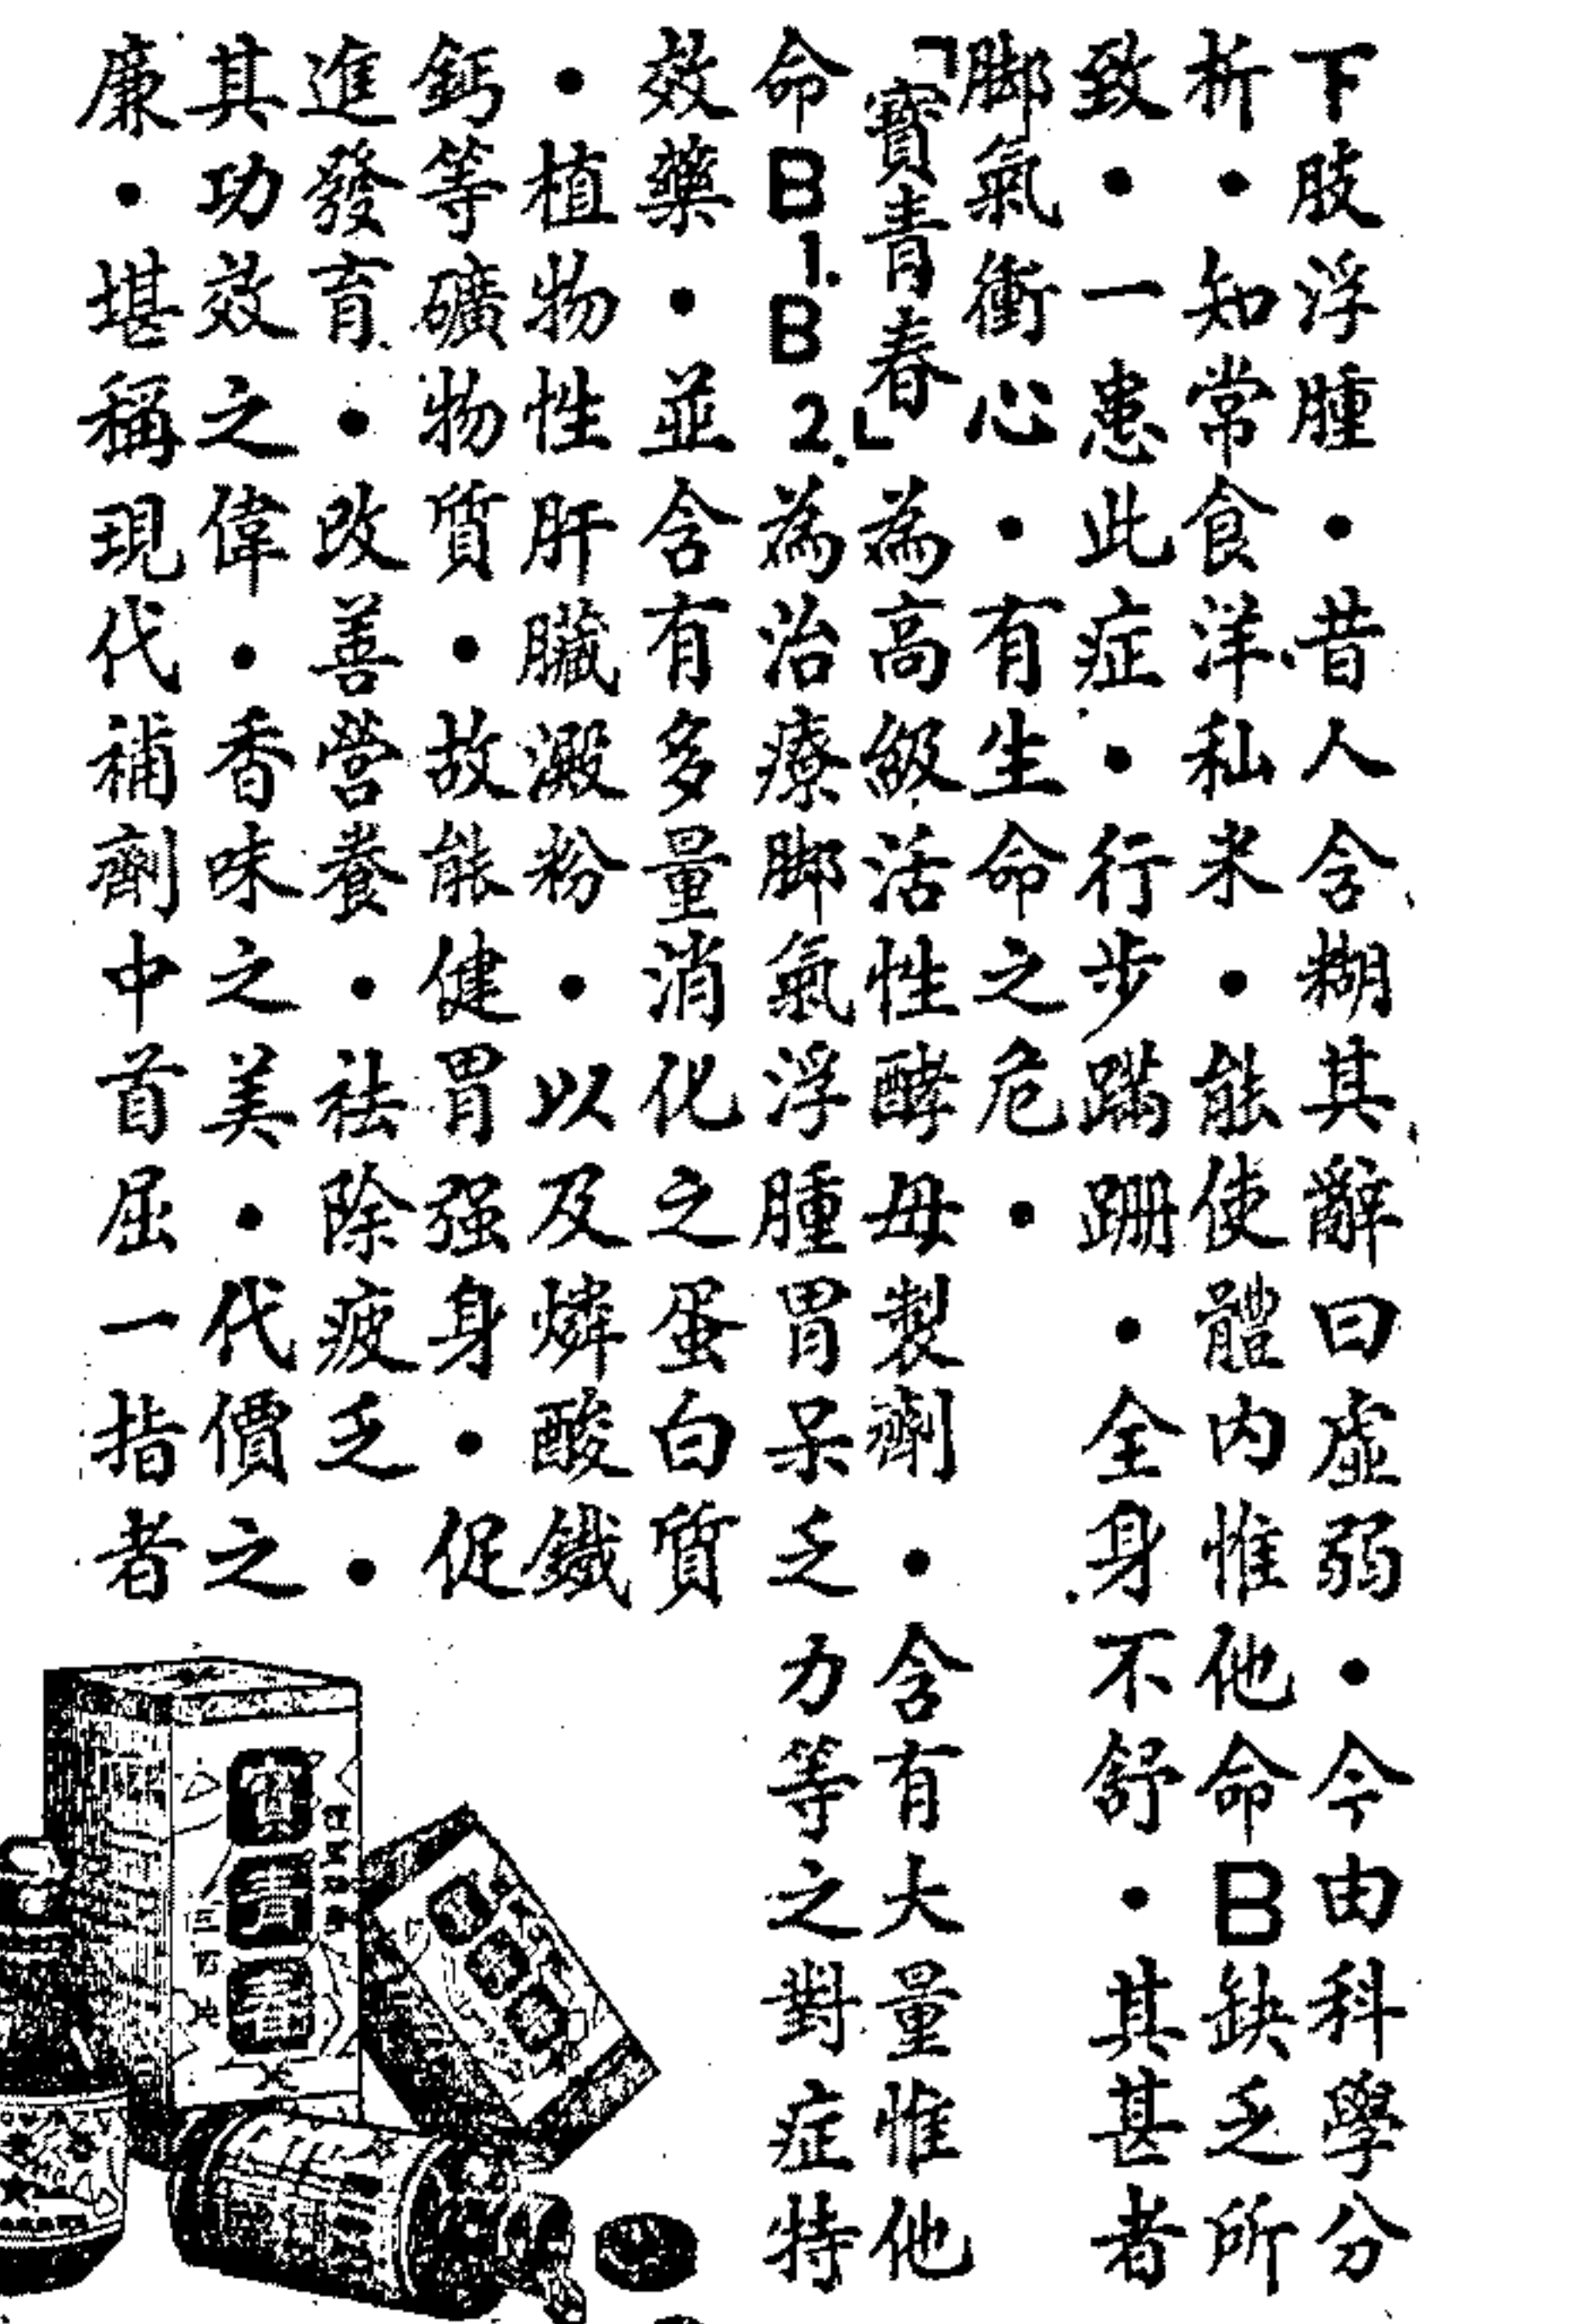 下肢浮腫・昔人含糊其辭曰虛弱・今由科學分
析・知常食洋秈米・能使體內惟他命B缺乏所
致・一患此症・行步蹣跚・全身不舒・其甚者
脚氣衝心・有生命之危・
「寶青春」為高級活性酵母製劑・含有大量惟他
命B1.B2.為治療脚氣浮腫胃呆乏力等之對症特
效藥・並含有多量消化之蛋白質
・植物性肝臟澱粉・以及燐酸鐵
鈣等礦物質・故能健胃强身・促
進發育・改善營養・祛除疲乏・
其功效之偉・香味之美・代價之
廉・堪稱現代補劑中首屈一指者
寶青春
寶青春